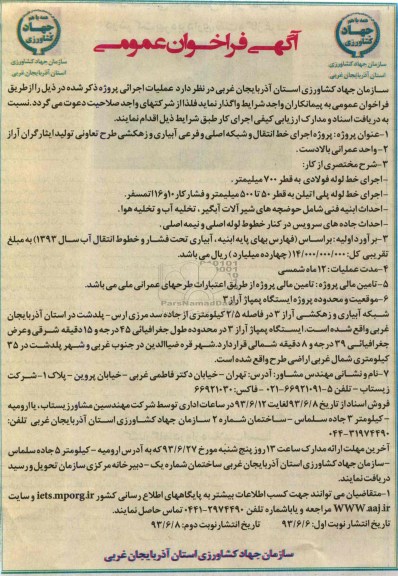 همه با هم
جهاد
کشاورزی
سازمان جهاد کشاورزی
استان آذربایجان غربی
آگهی فراخوان عمومی
همه با هم
جهاد
کشاورزی
سازمان جهاد کشاورزی
استان آذربایجان غربی
سازمان جهاد کشاورزی استان آذربایجان غربی در نظر دارد عملیات اجرائی پروژه ذکر شده در ذیل را از طریق
فراخوان عمومی به پیمانکاران واجد شرایط واگذار نماید فلذا از شرکتهای واجد صلاحیت دعوت می گردد. نسبت
به دریافت اسناد و مدارک ارزیابی کیفی اجرای کار طبق شرایط ذیل اقدام نمایند.
۱-عنوان پروژه: پروژه اجرای خط انتقال و شبکه اصلی و فرعی آبیاری و زهکشی طرح تعاونی تولید ایثارگران آراز
۲-واحد عمرانی بالادست.
۳-شرح مختصری از کار:
-اجرای خط لوله فولادی به قطر ۷۰۰ میلیمتر.
-اجرای خط لوله پلی اتیلن به قطر ۵۰ تا ۵۰۰ میلیمتر و فشار کار ۱۰ و ۱۶ اتمسفر.
-احداث ابنیه فنی شامل حوضچه های شیر آلات آبگیر، تخلیه آب و تخلیه هوا.
-احداث جاده های سرویس در کنار خطوط لوله اصلی و نیمه اصلی.
۳-برآورد اولیه: براساس (فهارس بهای پایه ابنیه، آبیاری تحت فشار و خطوط انتقال آب سال ۱۳۹۳) به مبلغ
تقریبی کل: ۱۴/۰۰۰/۰۰۰/۰۰۰ (چهارده میلیارد) ریال می باشد.
۴-مدت عملیات: ۱۲ ماه شمسی
۵-تامین مالی پروژه: تامین مالی پروژه از طریق اعتبارات طرحهای عمرانی ملی می باشد.
۶-موقعیت و محدوده پروژه ایستگاه پمپاژ آراز ۳
شبکه آبیاری و زهکشی آراز ۳ در فاصله ۲/۵ کیلومتری از جاده سد مرزی ارس - پلدشت در استان آذربایجان
غربی واقع شده است. ایستگاه پمپاژ آراز ۳ در محدوده طول جغرافیائی ۴۵ درجه و ۱۵ دقیقه شرقی و عرض
جغرافیائی ۳۹ درجه و ۸ دقیقه شمالی قرار دارد. شهر قره ضیاالدین در جنوب غربی و شهر پلدشت در ۳۵
کیلومتری شمال غربی اراضی طرح واقع شده است.
۷-نام و نشانی مهندس مشاور: آدرس: تهران - خیابان دکتر فاطمی غربی - خیابان پروین - پلاک ۱- شرکت
زیستاب - تلفن ۵-۶۶۹۲۱۰۹۱-۰۲۱ -فاکس: ۶۶۹۲۱۰۳۰
فروش اسناد از تاریخ ۹۳/۶/۸ لغایت ۹۳/۶/۱۲ در ساعات اداری توسط شرکت مهندسین مشاور زیستاب، یا ارومیه
- کیلومتر ۳ جاده سلماس - ساختمان شماره ۲ سازمان جهاد کشاورزی استان آذربایجان غربی تلفن:
۰۴۴-۳۱۹۷۴۴۹۰
آخرین مهلت ارائه مدارک ساعت ۱۳ روز پنج شنبه مورخ ۹۳/۶/۲۷ که به آدرس ارومیه - کیلومتر ۵ جاده سلماس
-سازمان جهاد کشاورزی استان آذربایجان غربی ساختمان شماره یک - دبیرخانه مرکزی سازمان تحویل و رسید
دریافت نمایند.
۱-متقاضیان می توانند جهت کسب اطلاعات بیشتر به پایگاههای اطلاع رسانی کشور iets.mporg.ir و سایت
WWW.aaj.ir مراجعه و یا باشماره تلفن ۲۹۷۴۴۹۰-۰۴۴۱ تماس حاصل نمایند.
تاریخ انتشار نوبت اول: ۹۳/۶/۶ تاریخ انتشار نوبت دوم: ۹۳/۶/۸
سازمان جهاد کشاورزی استان آذربایجان غربی